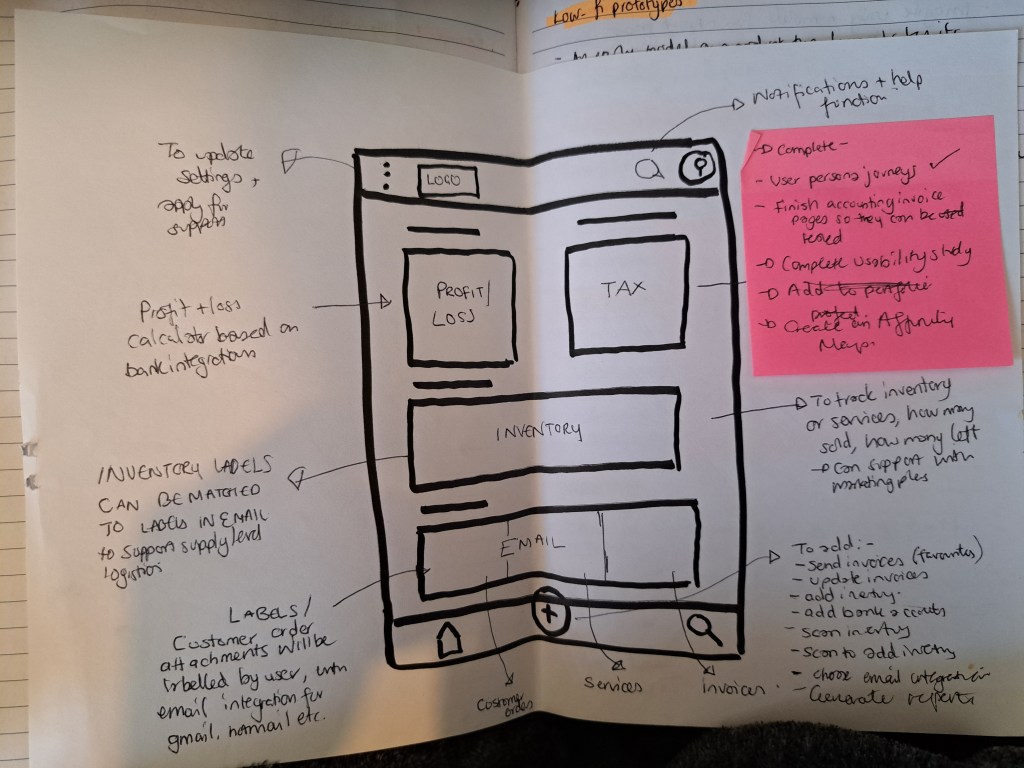 Low-fi prototypes
Notifications + help
function
To update
settings +
apply for
support
LOGO
Complete -
- User persona journeys ✓
- Finish accounting invoice
pages so they can be
tested
Complete Usability study
Add to
Create an Affinity
Map.
PROFIT/
LOSS
TAX
Profit + loss
calculator based on
bank integrations
INVENTORY
To track inventory
or services, how many
sold, how many left
Can support with
marketing ples
INVENTORY LABELS
CAN BE MATCHED
TO LABELS IN EMAIL
to support supply level
EMAIL
To add:-
- send invoices (favourites)
- update invoices
- add
- add bank
- scan
- scan to add
- choose email integration
- Generate reports
LABELS/
Customer order
attachments will be
labelled by user, with
email integration for
gmail, hotmail etc.
Customer
orders
Services
Invoices